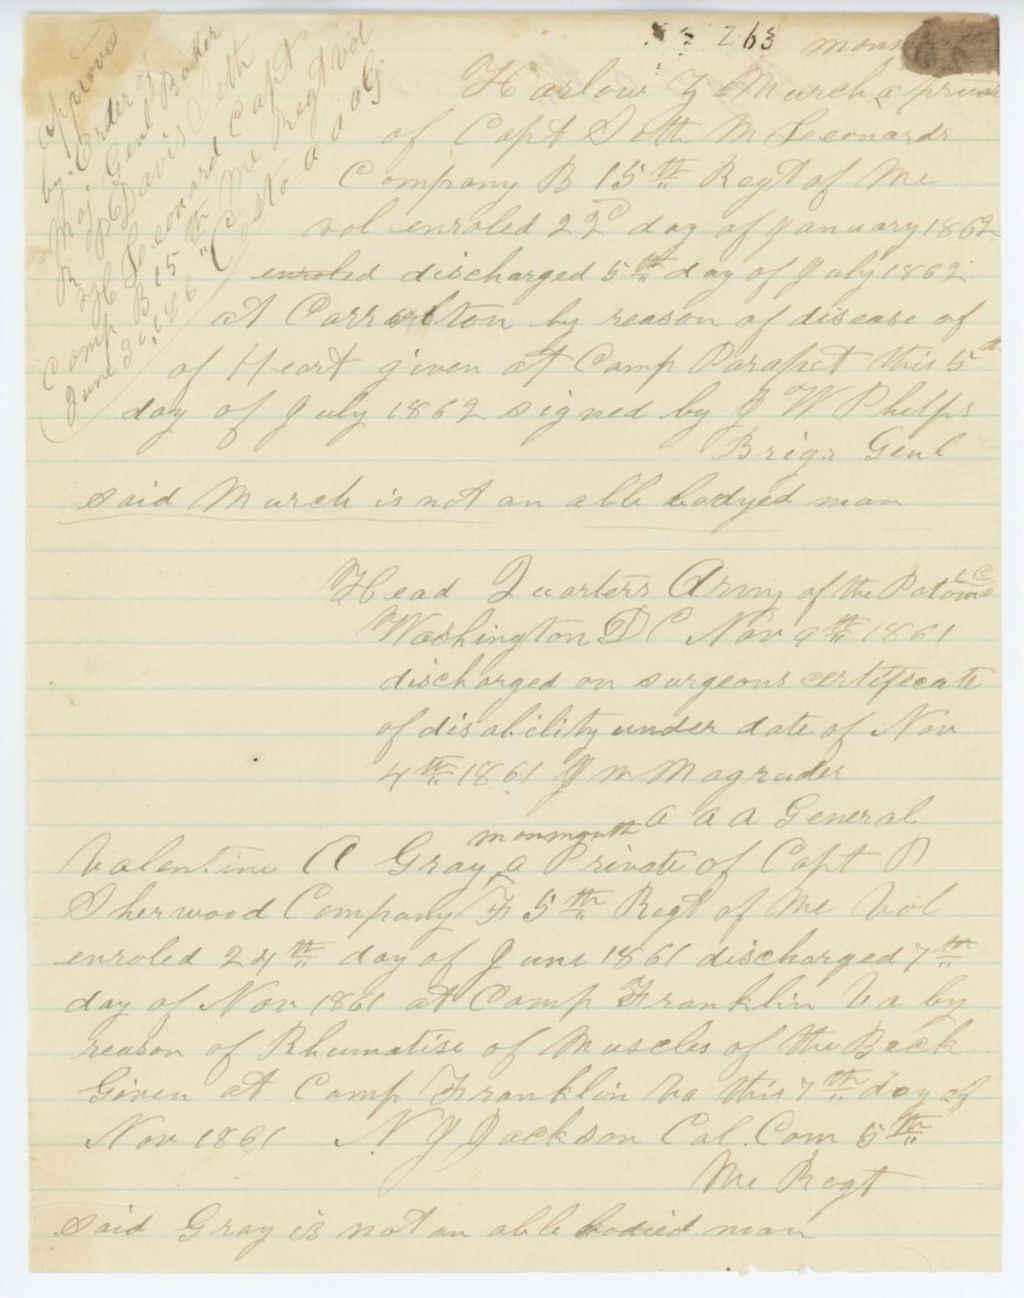 263
Harlow Y March, a private
of Capt Seth M Leonards
Company B 15th Regt of Me
vol enroled 22d day of January 1862
enroled discharged 5th day of July 1862
at Carrolton by reason of disease of
of Heart given at Camp Parapet this 5th
day of July 1862 signed by J W Phelps
Brigr Genl
said March is not an able bodyed man
approved
by Order of
Maj Genl Butler
R S Davis
Leonard Capt
Comp B 15th Me Regt vol
June 30, 186
a a a G
Head Quarters Army of the Potomac
Washington D C Nov 9th 1861
discharged on surgeons certificate
of disability under date of Nov
4th 1861 J W Magruder
a a a General
monmouth
Valentine A Gray, a Private of Capt
Sherwood Company F 5th Regt of Me Vol
enroled 24th day of June 1861 discharged 7th
day of Nov 1861 at Camp Franklin Va by
reason of Rhumatise of Muscles of the Back
Given at Camp Franklin Va this 7th day of
Nov 1861 N J Jackson Col. Com 5th
Me Regt
said Gray is not an able bodied man